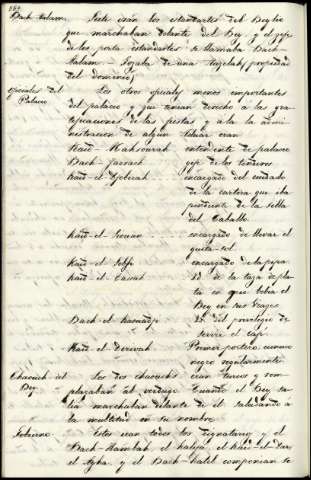 Bach-Aalam. Siete eran los estandartes del Beylie
que marchaban delante del Bey y el gefe
de los porta estandartes se llamaba Bach-
Aalam. - Gozaba de una (propiedad
del dominio)
Oficiales del Palacio Los otros oficiales menos importantes
del palacio y que tenian derecho a las gra-
tificaciones de las fiestas y a la admi-
nistracion de algun eran
Kaid-Maksourah intendente de palacio
Bach-farrach gefe de los
Kaid-el-Djebirah encargado del cuidado
de la cartera que iba
pendiente de la silla
del Caballo
Kaid-el encargado de llevar el
quita-sol.
Kaid-el encargado de la
Kaid-el id. de la taza de pla-
ta en que bebia el
Bey en sus viages
Bach-el id. del privilegio de
servir el café
Kaid-el Primer portero, eunuco
negro regularmente
Chaouch del Bey Los dos chaouchs eran turcos y rem-
plazaban al verdugo. Cuando el Bey sa-
lia marchaban delante de él saludando a
la multitud en su nombre
Gobierno Estos eran todos los dignatarios y el
Bach-Hambah, el kalifa, el Kaid-el-Dar,
el Agha, y el Bach-Kateb componian el